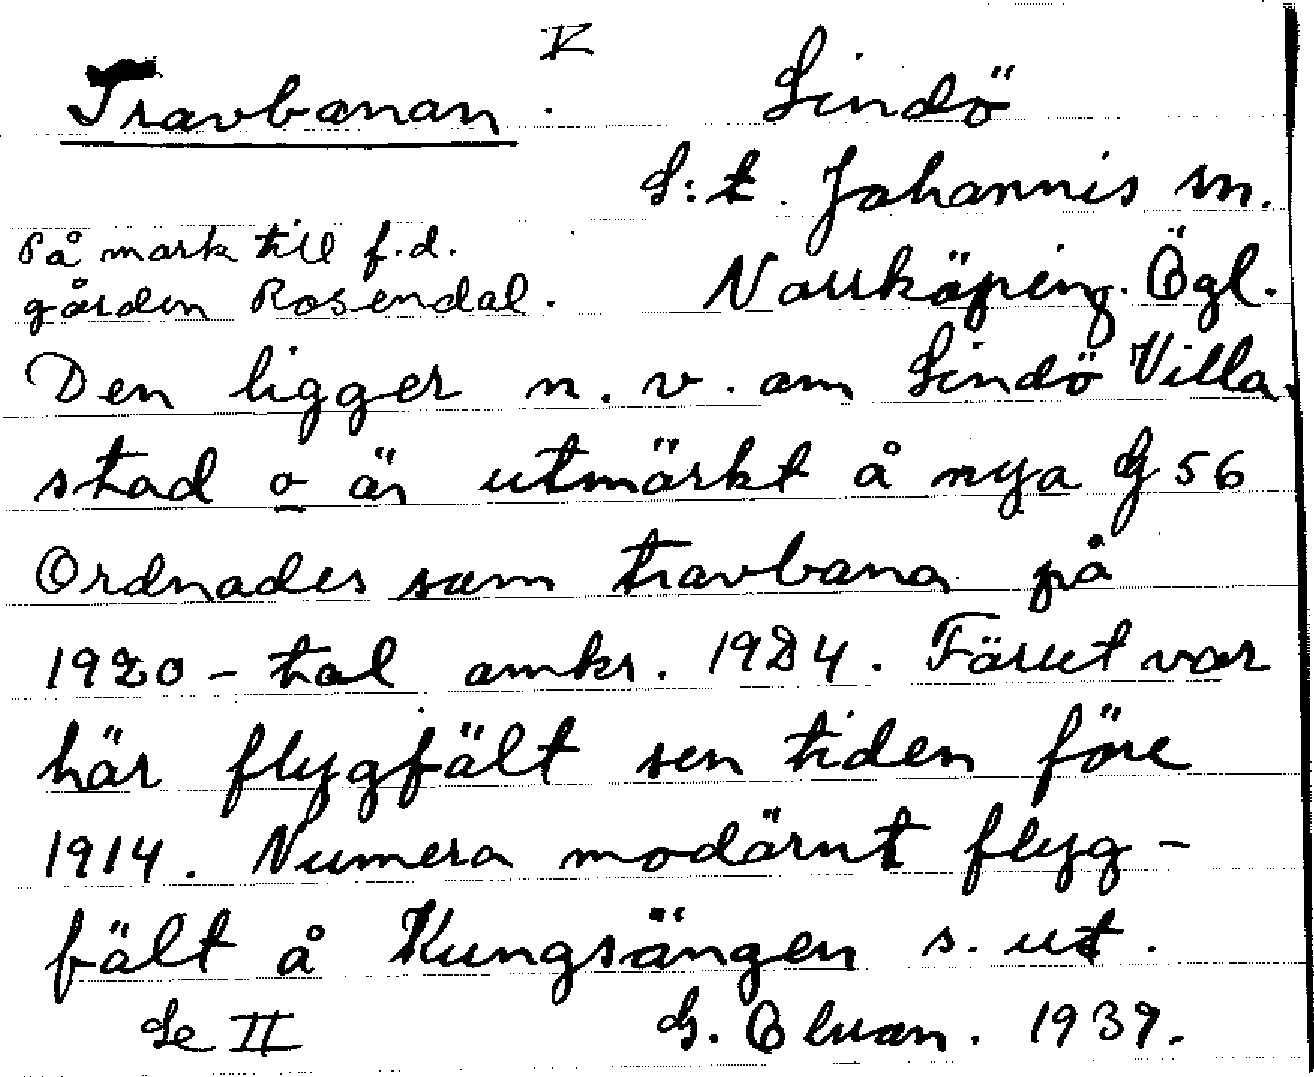 V
Travbanan. Lindö
S:t. Johannis sn.
På mark till f.d.
gården Rosendal. Norrköping. Ögl.
Den ligger n. v. om Lindö Villa-
stad o är utmärkt å nya G 56
Ordnades som travbana på
1920-tal omkr. 1924. Förut var
här flygfält sen tiden före
1914. Numera modärnt flyg-
fält å Kungsängen s. ut.
Le II G. 1939.